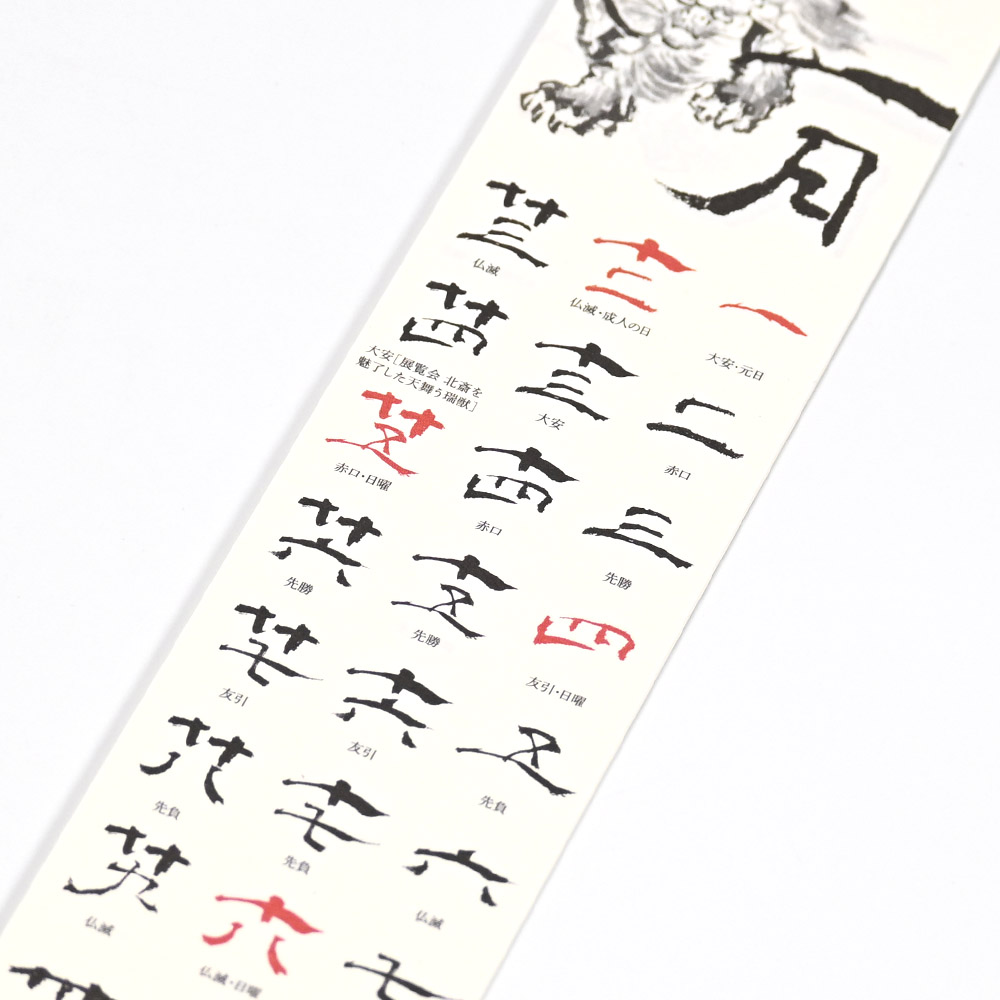 一月
一
大安・元日
二
赤口
三
先勝
四
友引・日曜
五
先負
六
仏滅
七
十二
仏滅・成人の日
十三
大安
十四
赤口
十五
先勝
十六
友引
十七
先負
十八
仏滅・日曜
廿三
仏滅
廿四
大安［展覧会 北斎を
魅了した天舞う瑞獣］
廿五
赤口・日曜
廿六
先勝
廿七
友引
廿八
先負
廿九
仏滅